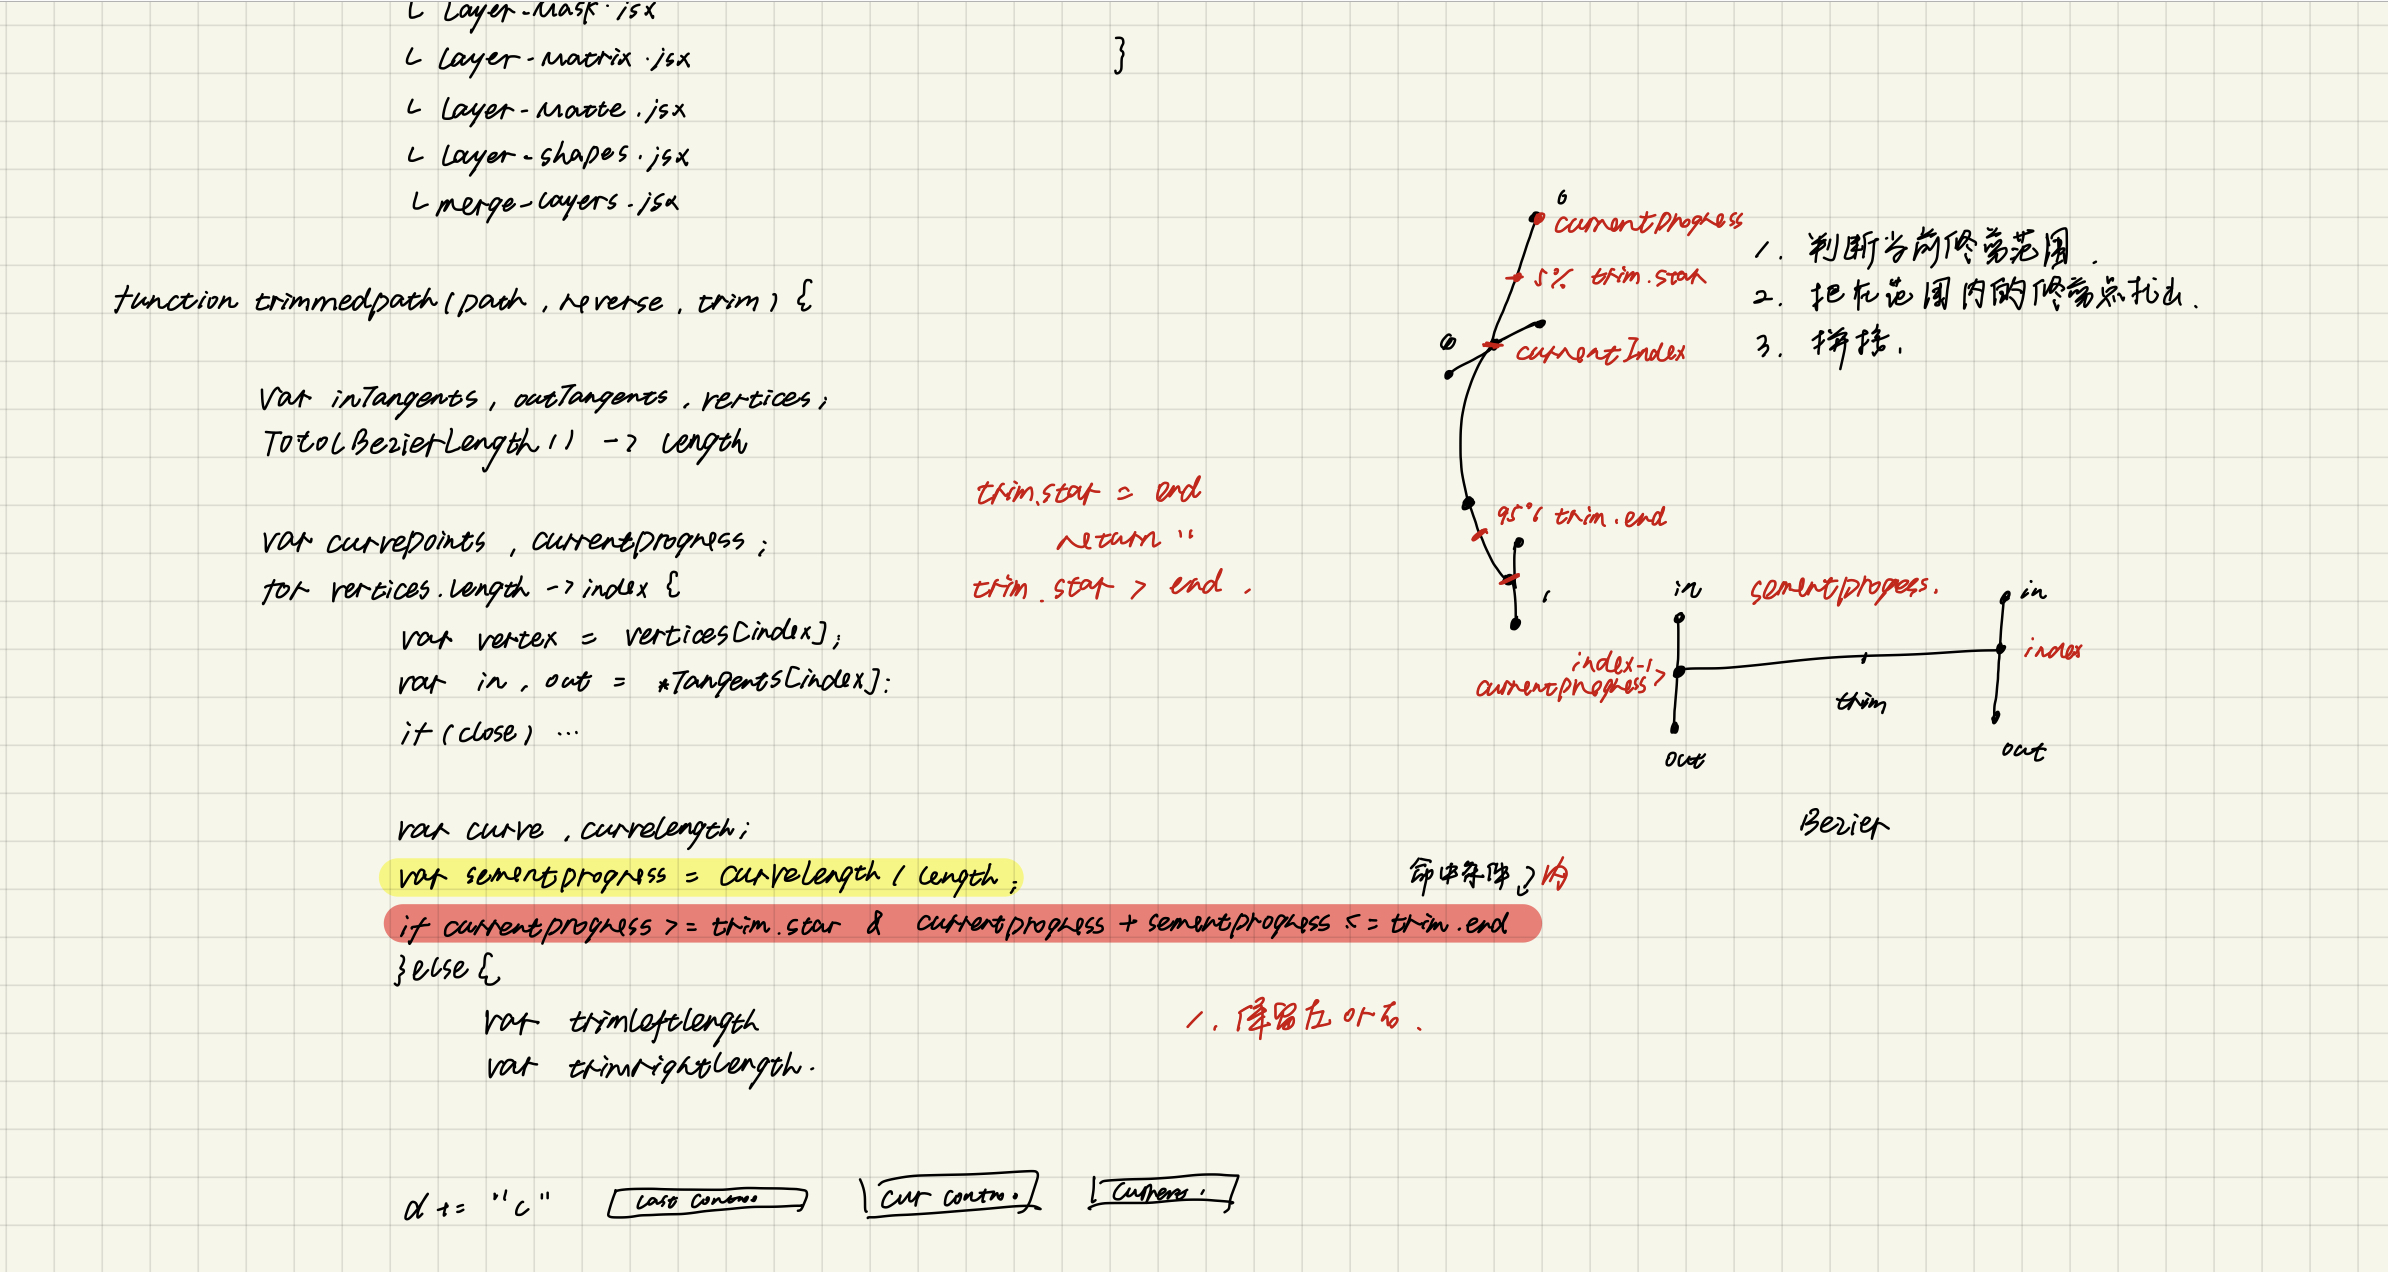 └ Layer-Mask.jsx
└ Layer-Matrix.jsx
}
└ Layer-Matte.jsx
└ Layer-shapes.jsx
└ merge-layers.jsx
function trimmedpath(path, reverse, trim) {
var inTangents, outTangents, vertices;
TotolBezierLength() -> Length
var curvepoints, currentprogress;
for vertices.length -> index {
var vertex = vertices[index];
var in, out = *Tangents[index];
if (close) ...
var curve, curvelength;
var sementprogress = curvelength / length;
if currentprogress >= trim.star & currentprogress + sementprogress <= trim.end
} else {
var trimleftlength
var trimrightlength.
d += "c" last contro. cur contro.
trim.star = end
return ''
trim.star > end.
命中条件 内
1. 保留左 or 右.
0
currentprogress
5% trim.star
currentIndex
95% trim.end
1
1. 判断当前修剪范围.
2. 把在范围内的修剪点找出.
3. 拼接.
in
sementprogess.
in
index-1
currentprogress >
index
trim
out
out
Bezier